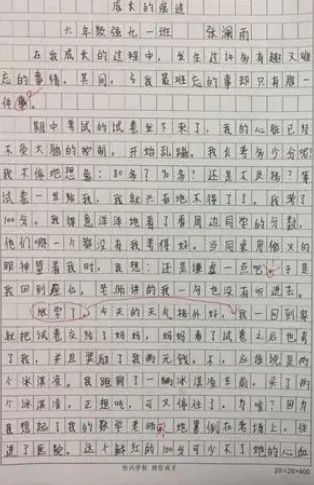 成长的痕迹
六年数强化一班 张澜雨
在我成长的过程中，发生过许多有趣又难
忘的事情。其间，令我最难忘的事却只有那一
件事。
期中考试的试卷发下来了，我的心脏已经
不受大脑的控制，开始乱蹦。我会考多少分呢？
我不停地想象：80多？90多？还是不及格？等
试卷一发给我，我就兴奋地不得了了。我考了
100分。我得意洋洋地看了看周边同学的分数，
他们哪一个都没有我考得好。当同桌用俗义的
眼神望着我时，我想：还是谦虚一点吧。于是
我回到座位，老师讲的我一句也没有听进去。
放学了，今天的天气格外好，我一回到家
就把试卷交给了妈妈，妈妈看了试卷之后也夸
了我，并且奖励了我两元钱。不，应该说是两
个冰淇淋。我跑到了一辆冰淇淋车前，买了两
个冰淇淋。正想吃，可又停住了。为啥？因为
我想起了我的数学老师 地累倒在考场上，住
进了医院。这个鲜红的100分可少不了她的心血
恒兴学校 德信成才
20×20=400